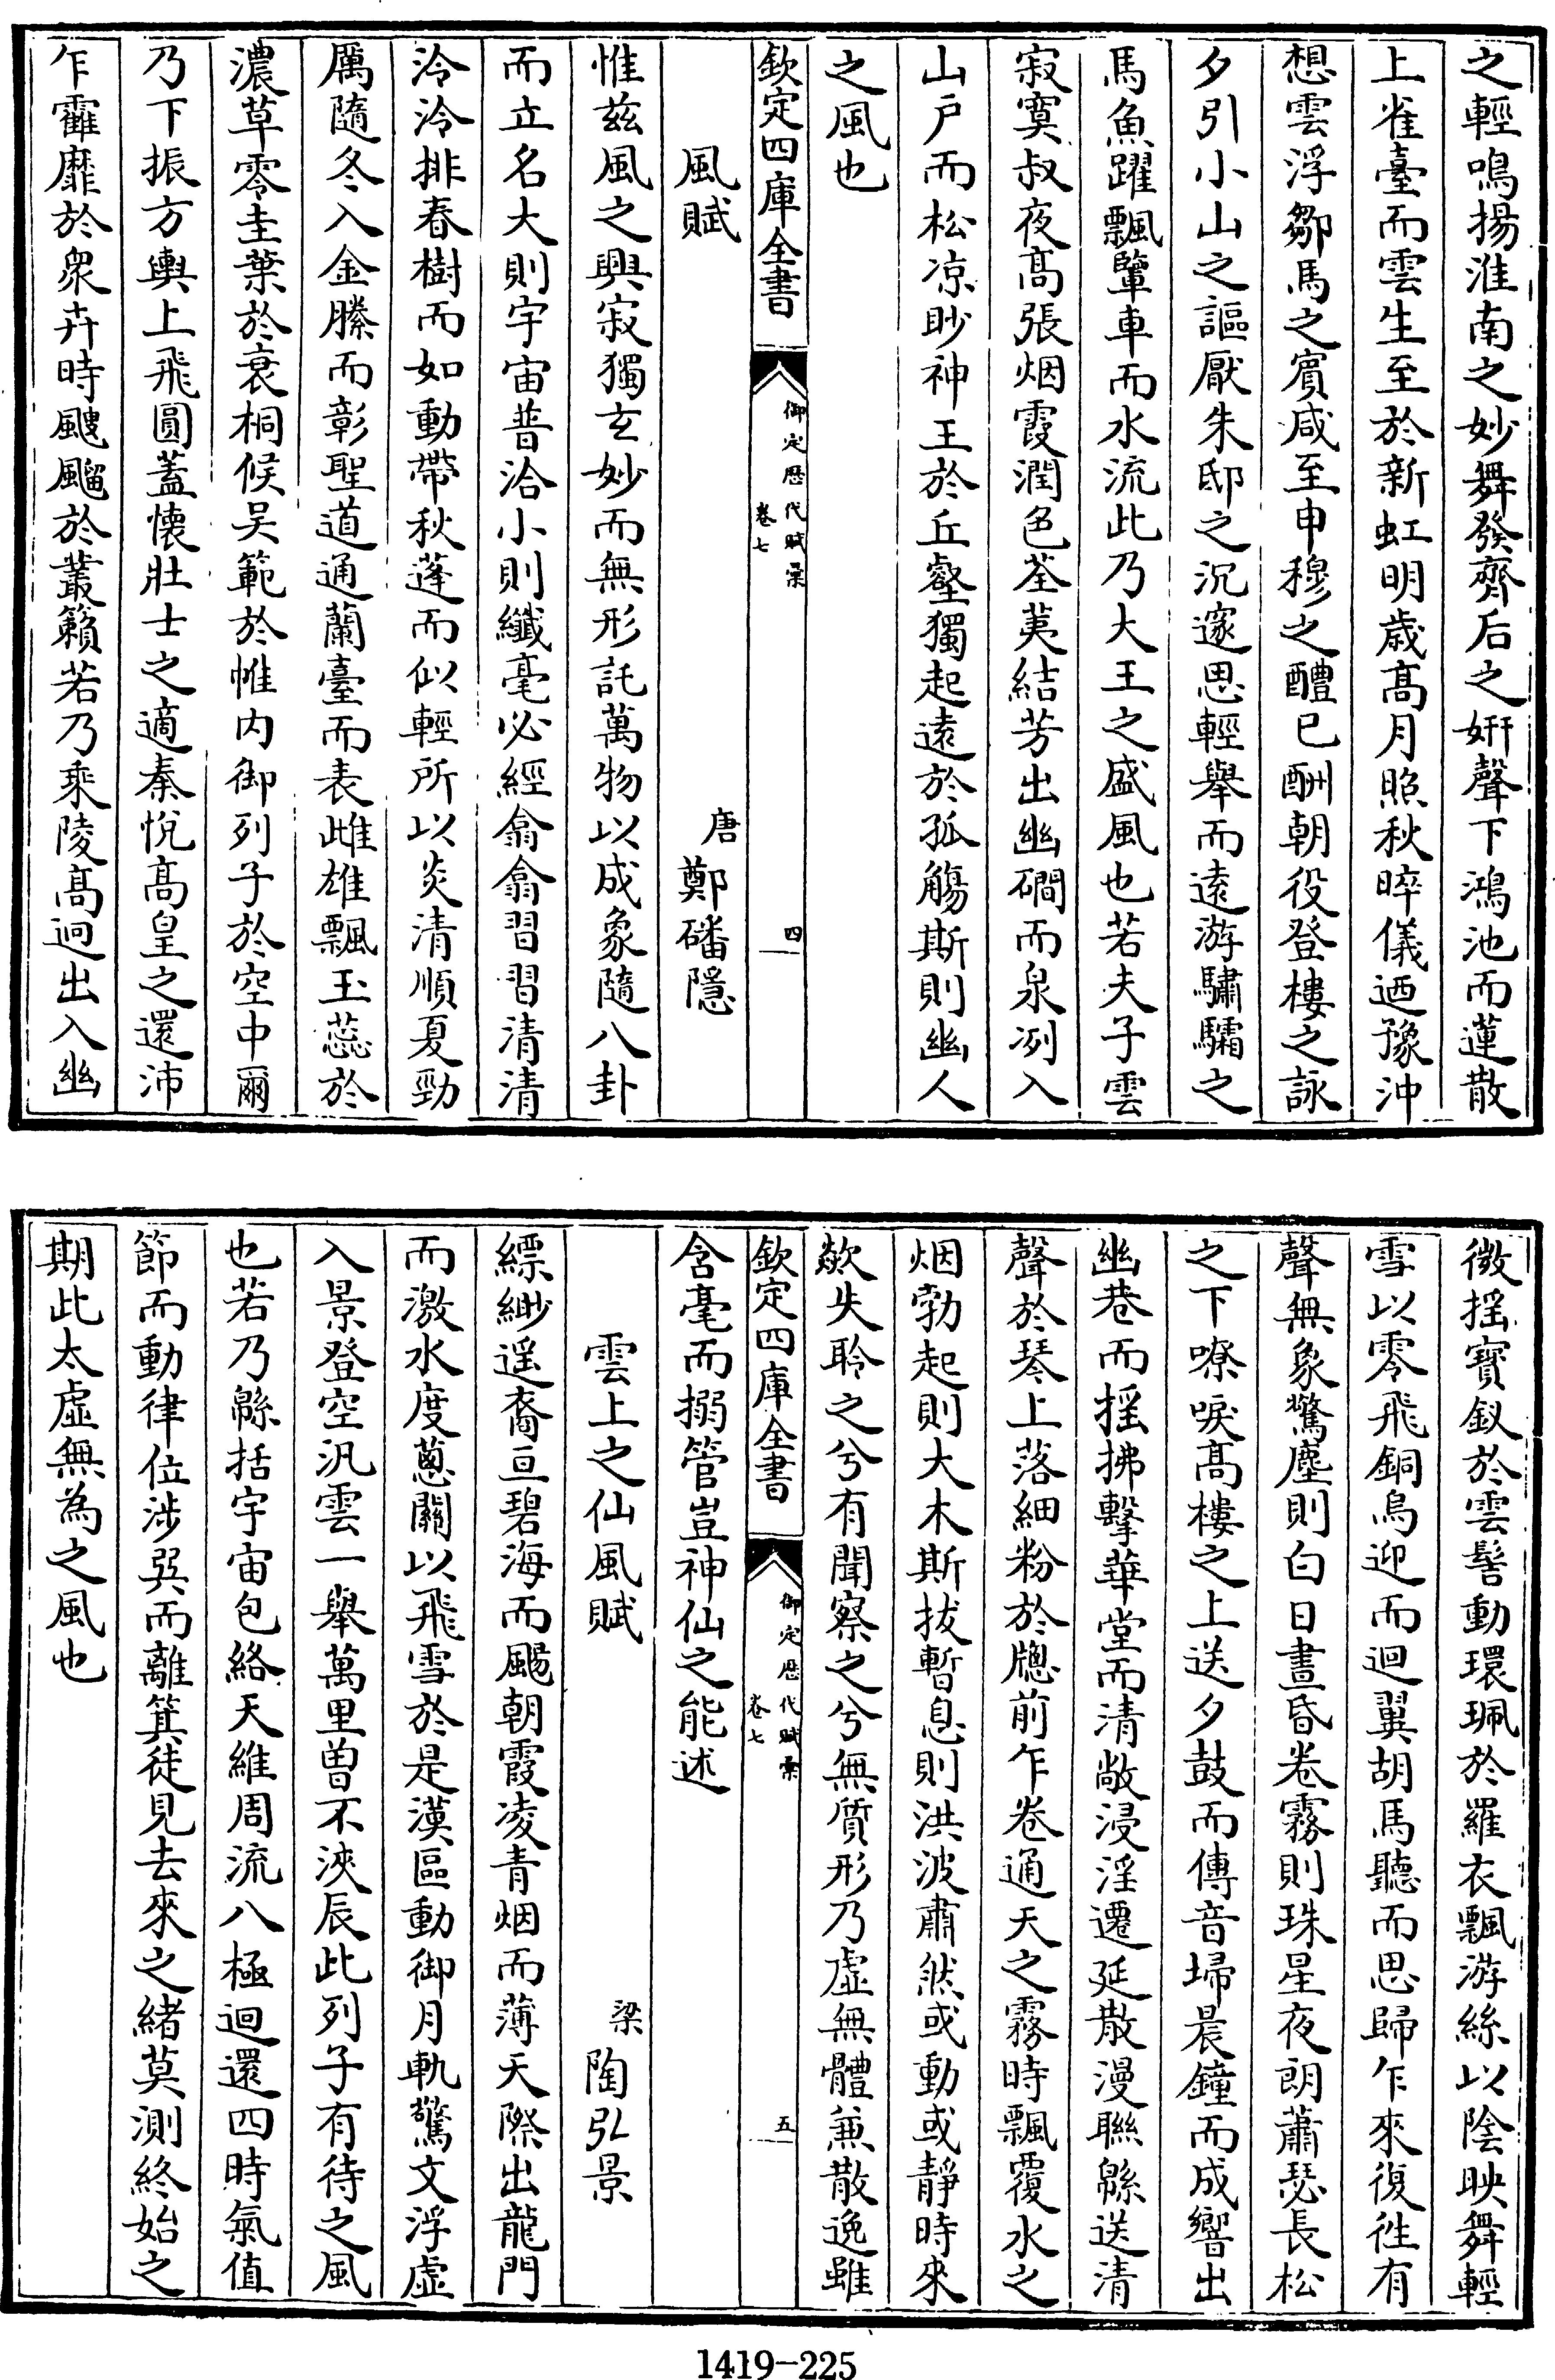 之輕鳴揚淮南之妙舞發齊后之姸聲下鴻池而蓮散
上雀臺而雲生至於新虹明歲髙月照秋晬儀迺豫沖
想雲浮鄒馬之賓咸至申穆之醴已酬朝役登樓之詠
夕引小山之謳厭朱邸之沉邃思輕舉而逺游驌驦之
馬魚躍飄鞶車而水流此乃大王之盛風也若夫子雲
寂寞叔夜髙張烟霞潤色荃荑結芳出幽磵而泉冽入
山戶而松凉眇神王於丘壑獨起逺於孤觴斯則幽人
之風也
欽定四庫全書
御定歷代賦彙
卷七
四
風賦
唐鄭磻隱
惟兹風之興寂獨玄妙而無形託萬物以成象隨八卦
而立名大則宇宙普洽小則纎毫必經翕翕習習清清
泠泠排春樹而如動帶秋蓬而似輕所以炎清順夏勁
厲隨冬入金縢而彰聖道通蘭臺而表雌雄飄玉蕊於
濃草零圭葉於衰桐候吴範於帷内御列子於空中爾
乃下振方輿上飛圓蓋懐壯士之適秦悅髙皇之還沛
乍靃靡於衆卉時颼飀於叢籟若乃乘陵髙迥出入幽
微揺寶釵於雲髻動環珮於羅衣飄游絲以陰映舞輕
雪以零飛銅烏迎而迴翼胡馬聽而思歸乍來復徃有
聲無象驚塵則白日晝昏卷霧則珠星夜朗蕭瑟長松
之下嘹唳髙樓之上送夕鼓而傳音埽晨鐘而成響出
幽巷而揺拂擊華堂而清敞浸淫遷延散漫聯緜送清
聲於琴上落細粉於牕前乍卷通天之霧時飄覆水之
烟勃起則大木斯拔暫息則洪波肅然或動或靜時來
歘失聆之兮有聞察之兮無質形乃虚無體兼散逸雖
欽定四庫全書
御定歷代賦彙
卷七
五
含毫而搦管豈神仙之能述
雲上之仙風賦
梁陶弘景
縹緲遥裔亘碧海而颺朝霞凌青烟而薄天際出龍門
而激水度蔥關以飛雪於是漢區動御月軌驚文浮虚
入景登空汎雲一舉萬里曾不浹辰此列子有待之風
也若乃緜括宇宙包絡天維周流八極迴還四時氣值
節而動律位涉巽而離箕徒見去來之緒莫測終始之
期此太虚無為之風也
1419-225